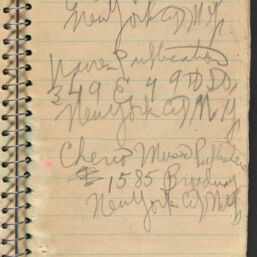 New York City N.Y.
Publication
349 E 49
New York City N.Y.
Cherio Music Publishers
1585 Broadway
New York City N.Y.